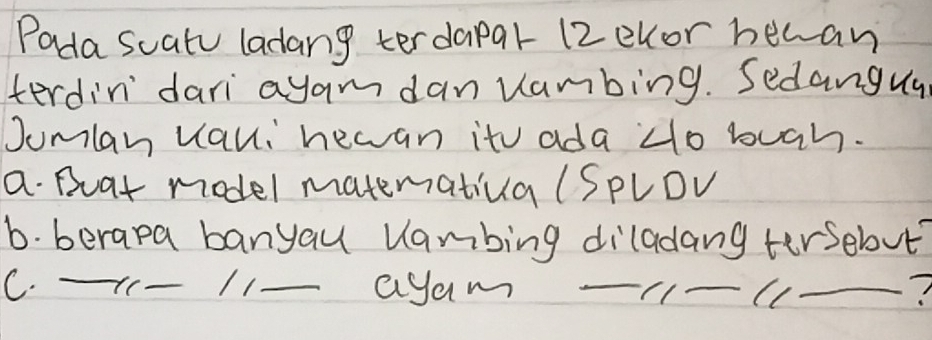 Pada suatu ladang terdapat 12 ekor hewan
terdiri dari ayam dan kambing. Sedangkan
Jumlah kaki hewan itu ada 40 buah.
a. Buat model matematika / SPLDV
b. berapa banyak kambing diladang tersebut?
c. —〃— 〃— ayam —〃—〃—?